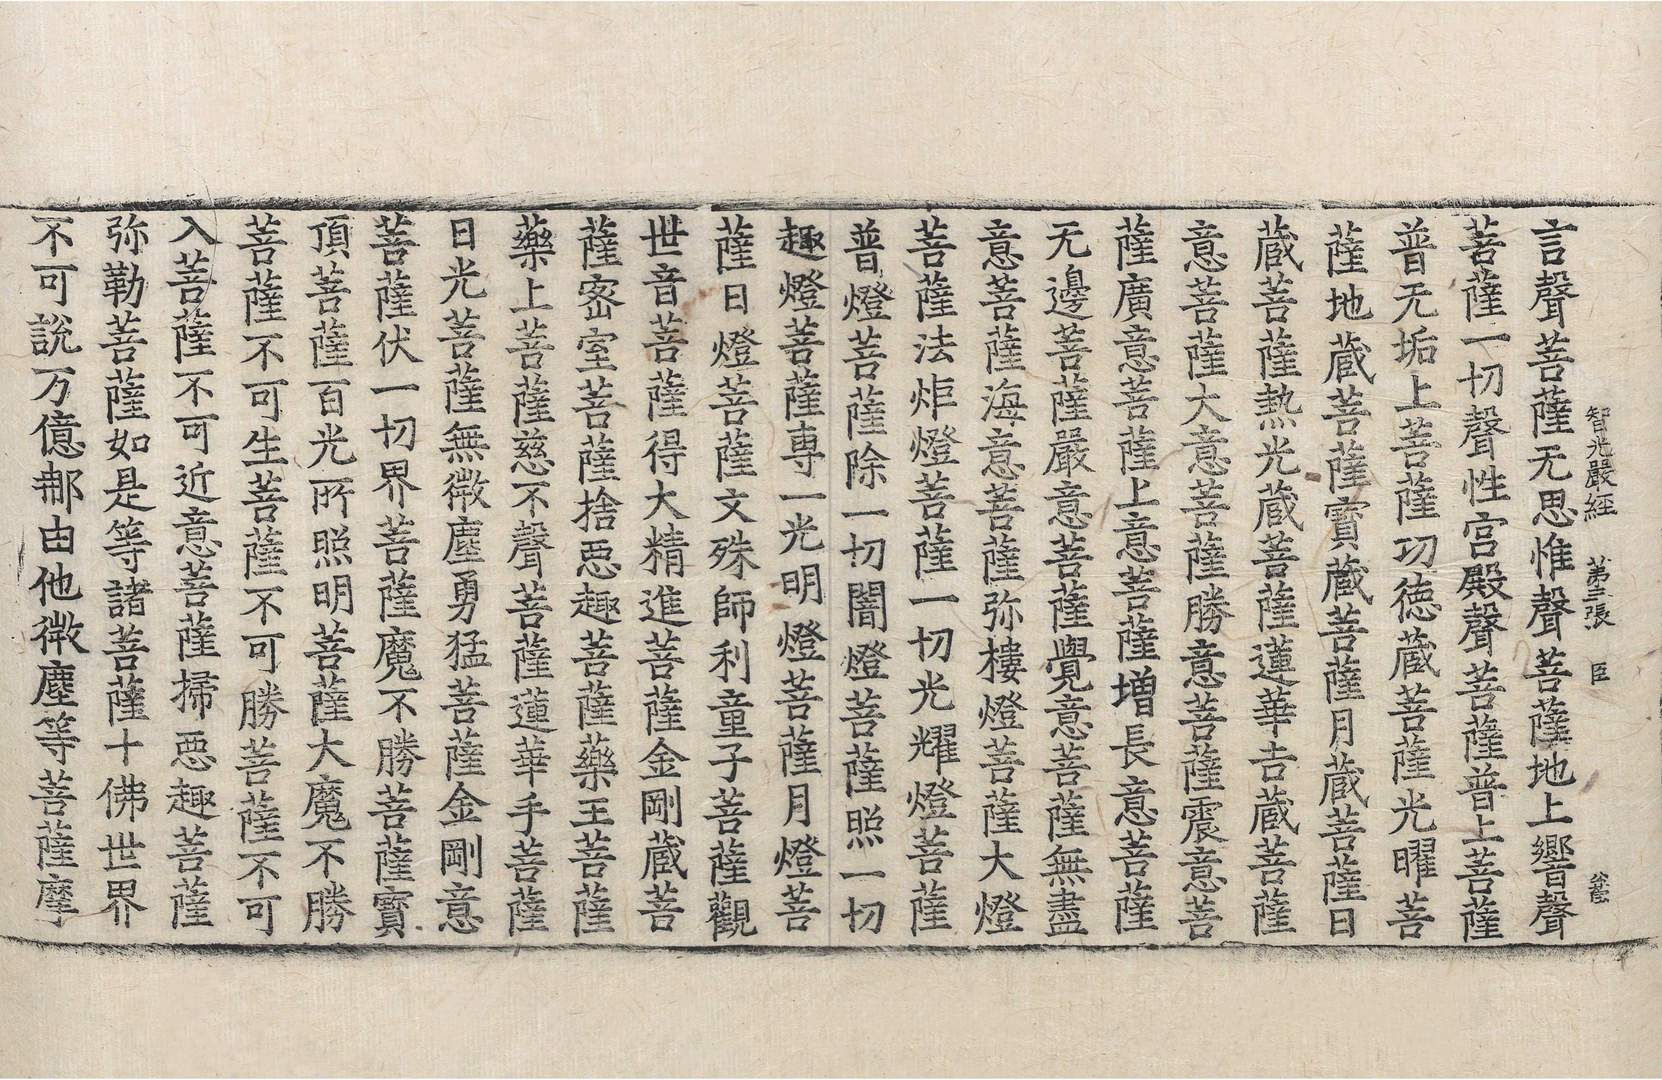 智光嚴經 第三張 臣
言聲菩薩无思惟聲菩薩地上響聲
菩薩一切聲性宮殿聲菩薩普上菩薩
普无垢上菩薩功德蔵菩薩光曜菩
薩地蔵菩薩寶蔵菩薩月蔵菩薩日
蔵菩薩熱光蔵菩薩蓮華吉蔵菩薩
意菩薩大意菩薩勝意菩薩震意菩
薩廣意菩薩上意菩薩增長意菩薩
无邊菩薩嚴意菩薩覺意菩薩無盡
意菩薩海意菩薩弥樓燈菩薩大燈
菩薩法炬燈菩薩一切光耀燈菩薩
普燈菩薩除一切闇燈菩薩照一切
趣燈菩薩專一光明燈菩薩月燈菩
薩日燈菩薩文殊師利童子菩薩觀
世音菩薩得大精進菩薩金剛蔵菩
薩密室菩薩捨惡趣菩薩藥王菩薩
藥上菩薩慈不聲菩薩蓮華手菩薩
日光菩薩無微塵勇猛菩薩金剛意
菩薩伏一切界菩薩魔不勝菩薩寶
頂菩薩百光所照明菩薩大魔不勝
菩薩不可生菩薩不可勝菩薩不可
入菩薩不可近意菩薩掃惡趣菩薩
弥勒菩薩如是等諸菩薩十佛世界
不可說万億那由他微塵等菩薩摩